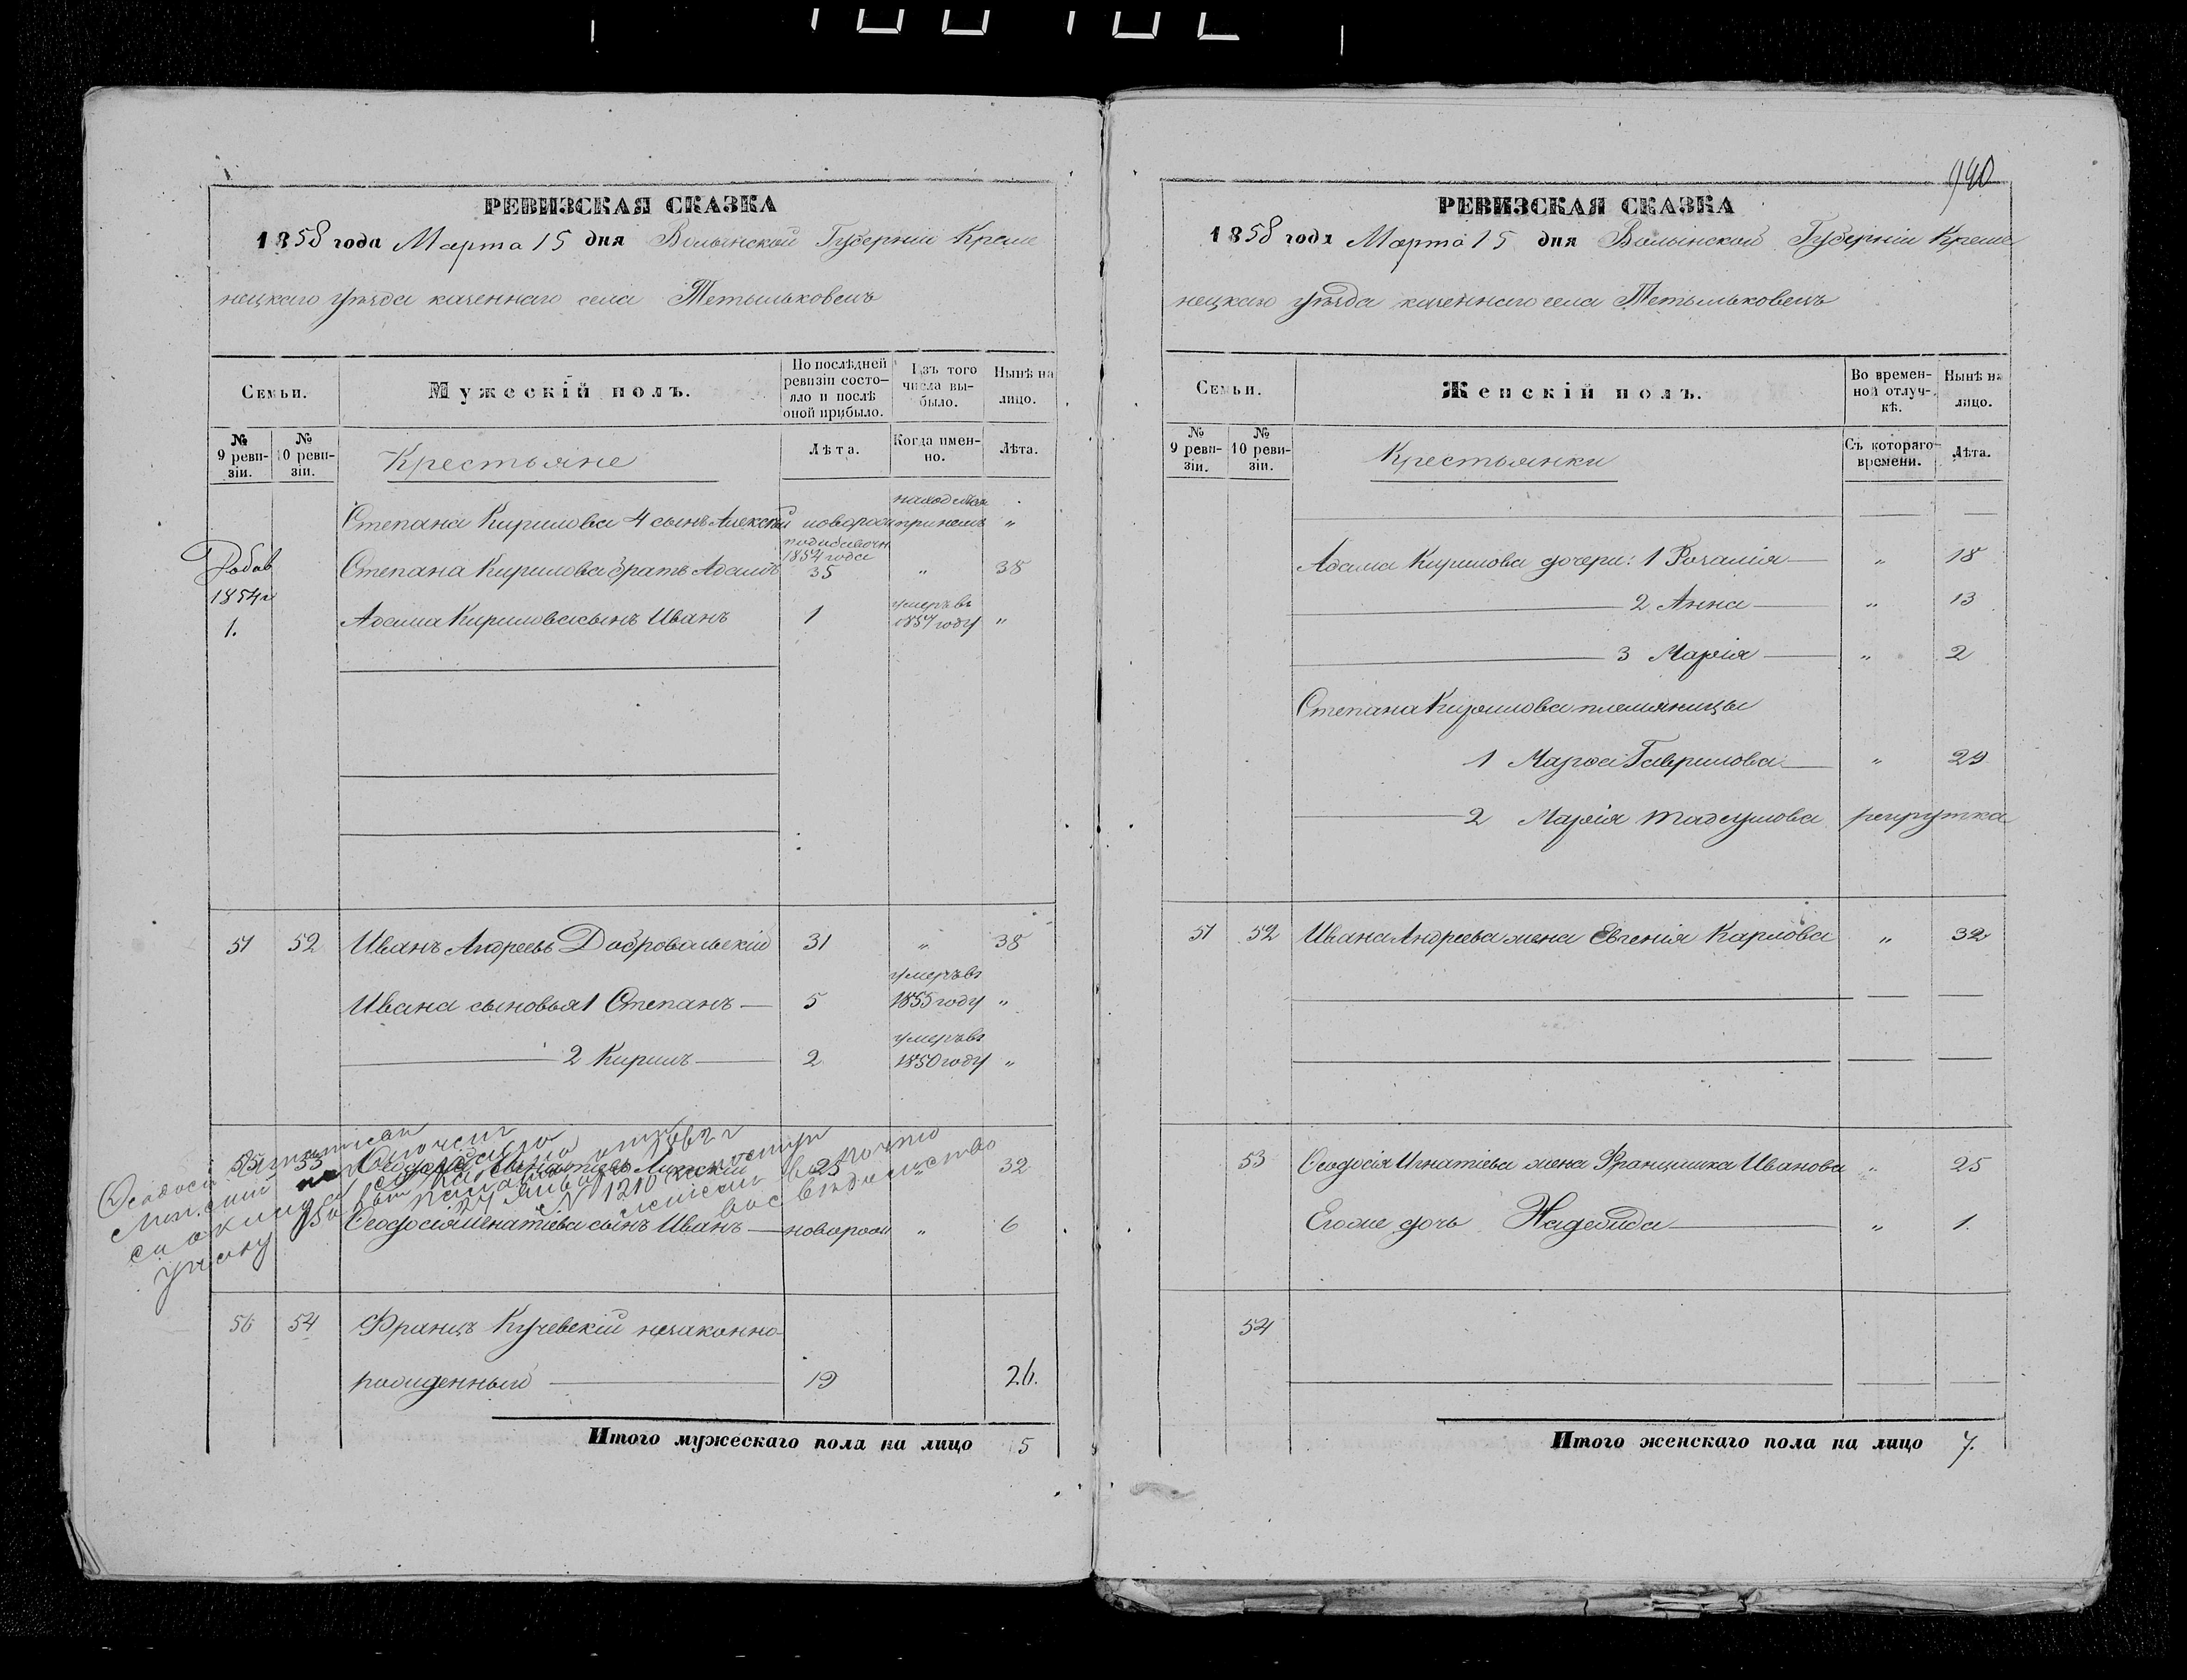 РЕВИЗСКАЯ СКАЗКА
1858 года Марта 15 дня Волынской Губерніи Креме
нецкаго уѣзда казеннаго села Тетыльковецъ
Семьи.
Мужескій полъ.
По послѣдней ревизіи состояло и послѣ оной прибыло.
Изъ того числа выбыло.
Нынѣ на лицо.
№ 9 ревизіи.
№ 10 ревизіи.
Крестьяне
Лѣта.
Когда именно.
Лѣта.
Степана Кирилова 4 сынъ Алексѣй новорож "
Добав 1854 г 1.
Степана Кирилова братъ Адамъ 1854 года 35 " 38
Адама Кирилова сынъ Иванъ 1 умеръ въ 1857 году "
51 52 Иванъ Андреевъ Добровольскій 31 " 38
Ивана сыновья 1 Степанъ 5 умеръ въ 1855 году "
2 Кирилъ 2 умеръ въ 1850 году "
53 25 32
Феодосія Игнатіева сынъ Иванъ новорож " 6
56 54 Францъ Кучевскій незаконно-
рожденный 19 26.
Итого мужескаго пола на лицо 5
940
РЕВИЗСКАЯ СКАЗКА
1858 года Марта 15 дня Волынской Губерніи Креме
нецкаго уѣзда казеннаго села Тетыльковецъ
Семьи.
Женскій полъ.
Во временной отлучкѣ.
Нынѣ на лицо.
№ 9 ревизіи.
№ 10 ревизіи.
Крестьянки
Съ котораго времени.
Лѣта.
Адама Кирилова дочери: 1 Розалія " 18
2 Анна " 13
3 Марія " 2
Степана Кирилова племяницы
1 Марѳа Гаврилова " 29
2 Марія рекрутка
51 52 Ивана Андреева жена Евгенія Карлова " 32
53 Феодосія Игнатіева жена Францишка Иванова " 25
Егоже дочь Надежда " 1.
54
Итого женскаго пола на лицо 7.